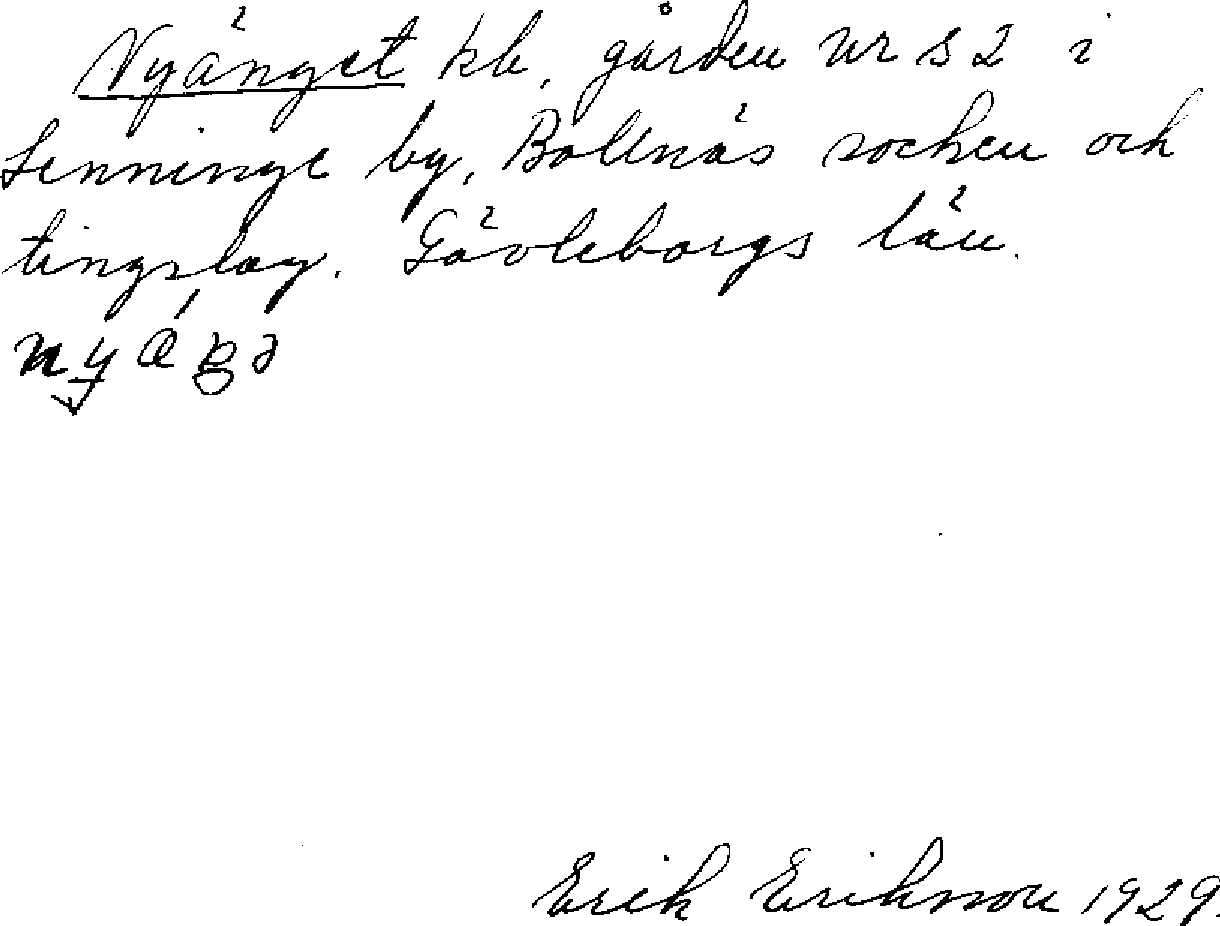 Nyänget kb, gården Nr i
Lenninge by, Bollnäs socken och
tingslag. Gävleborgs län.
Erik Eriksson 1929.